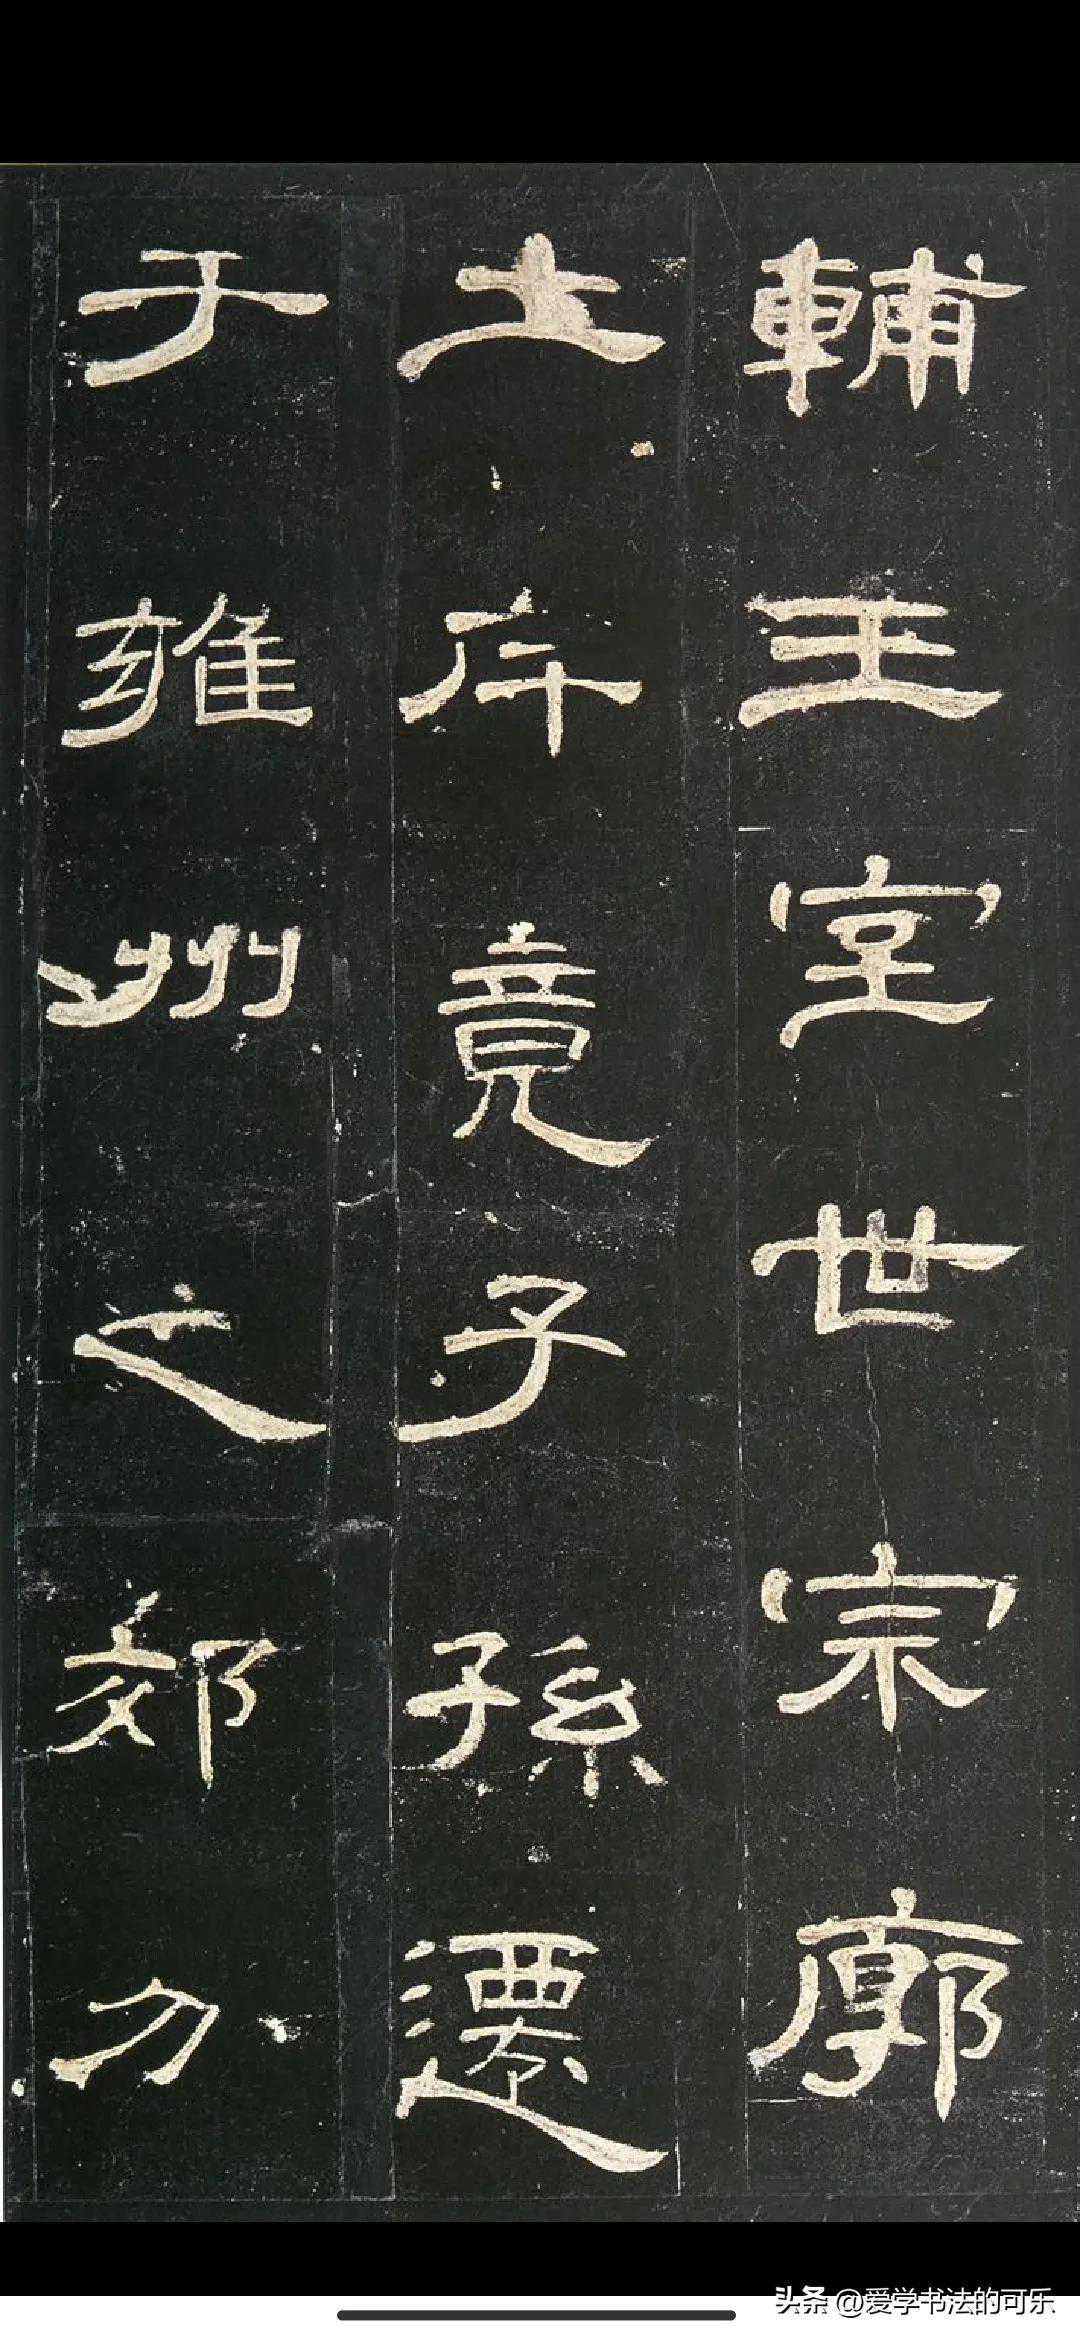 輔王室世宗廓
土斥竟子孫遷
于雍州之郊分
头条 @爱学书法的可乐